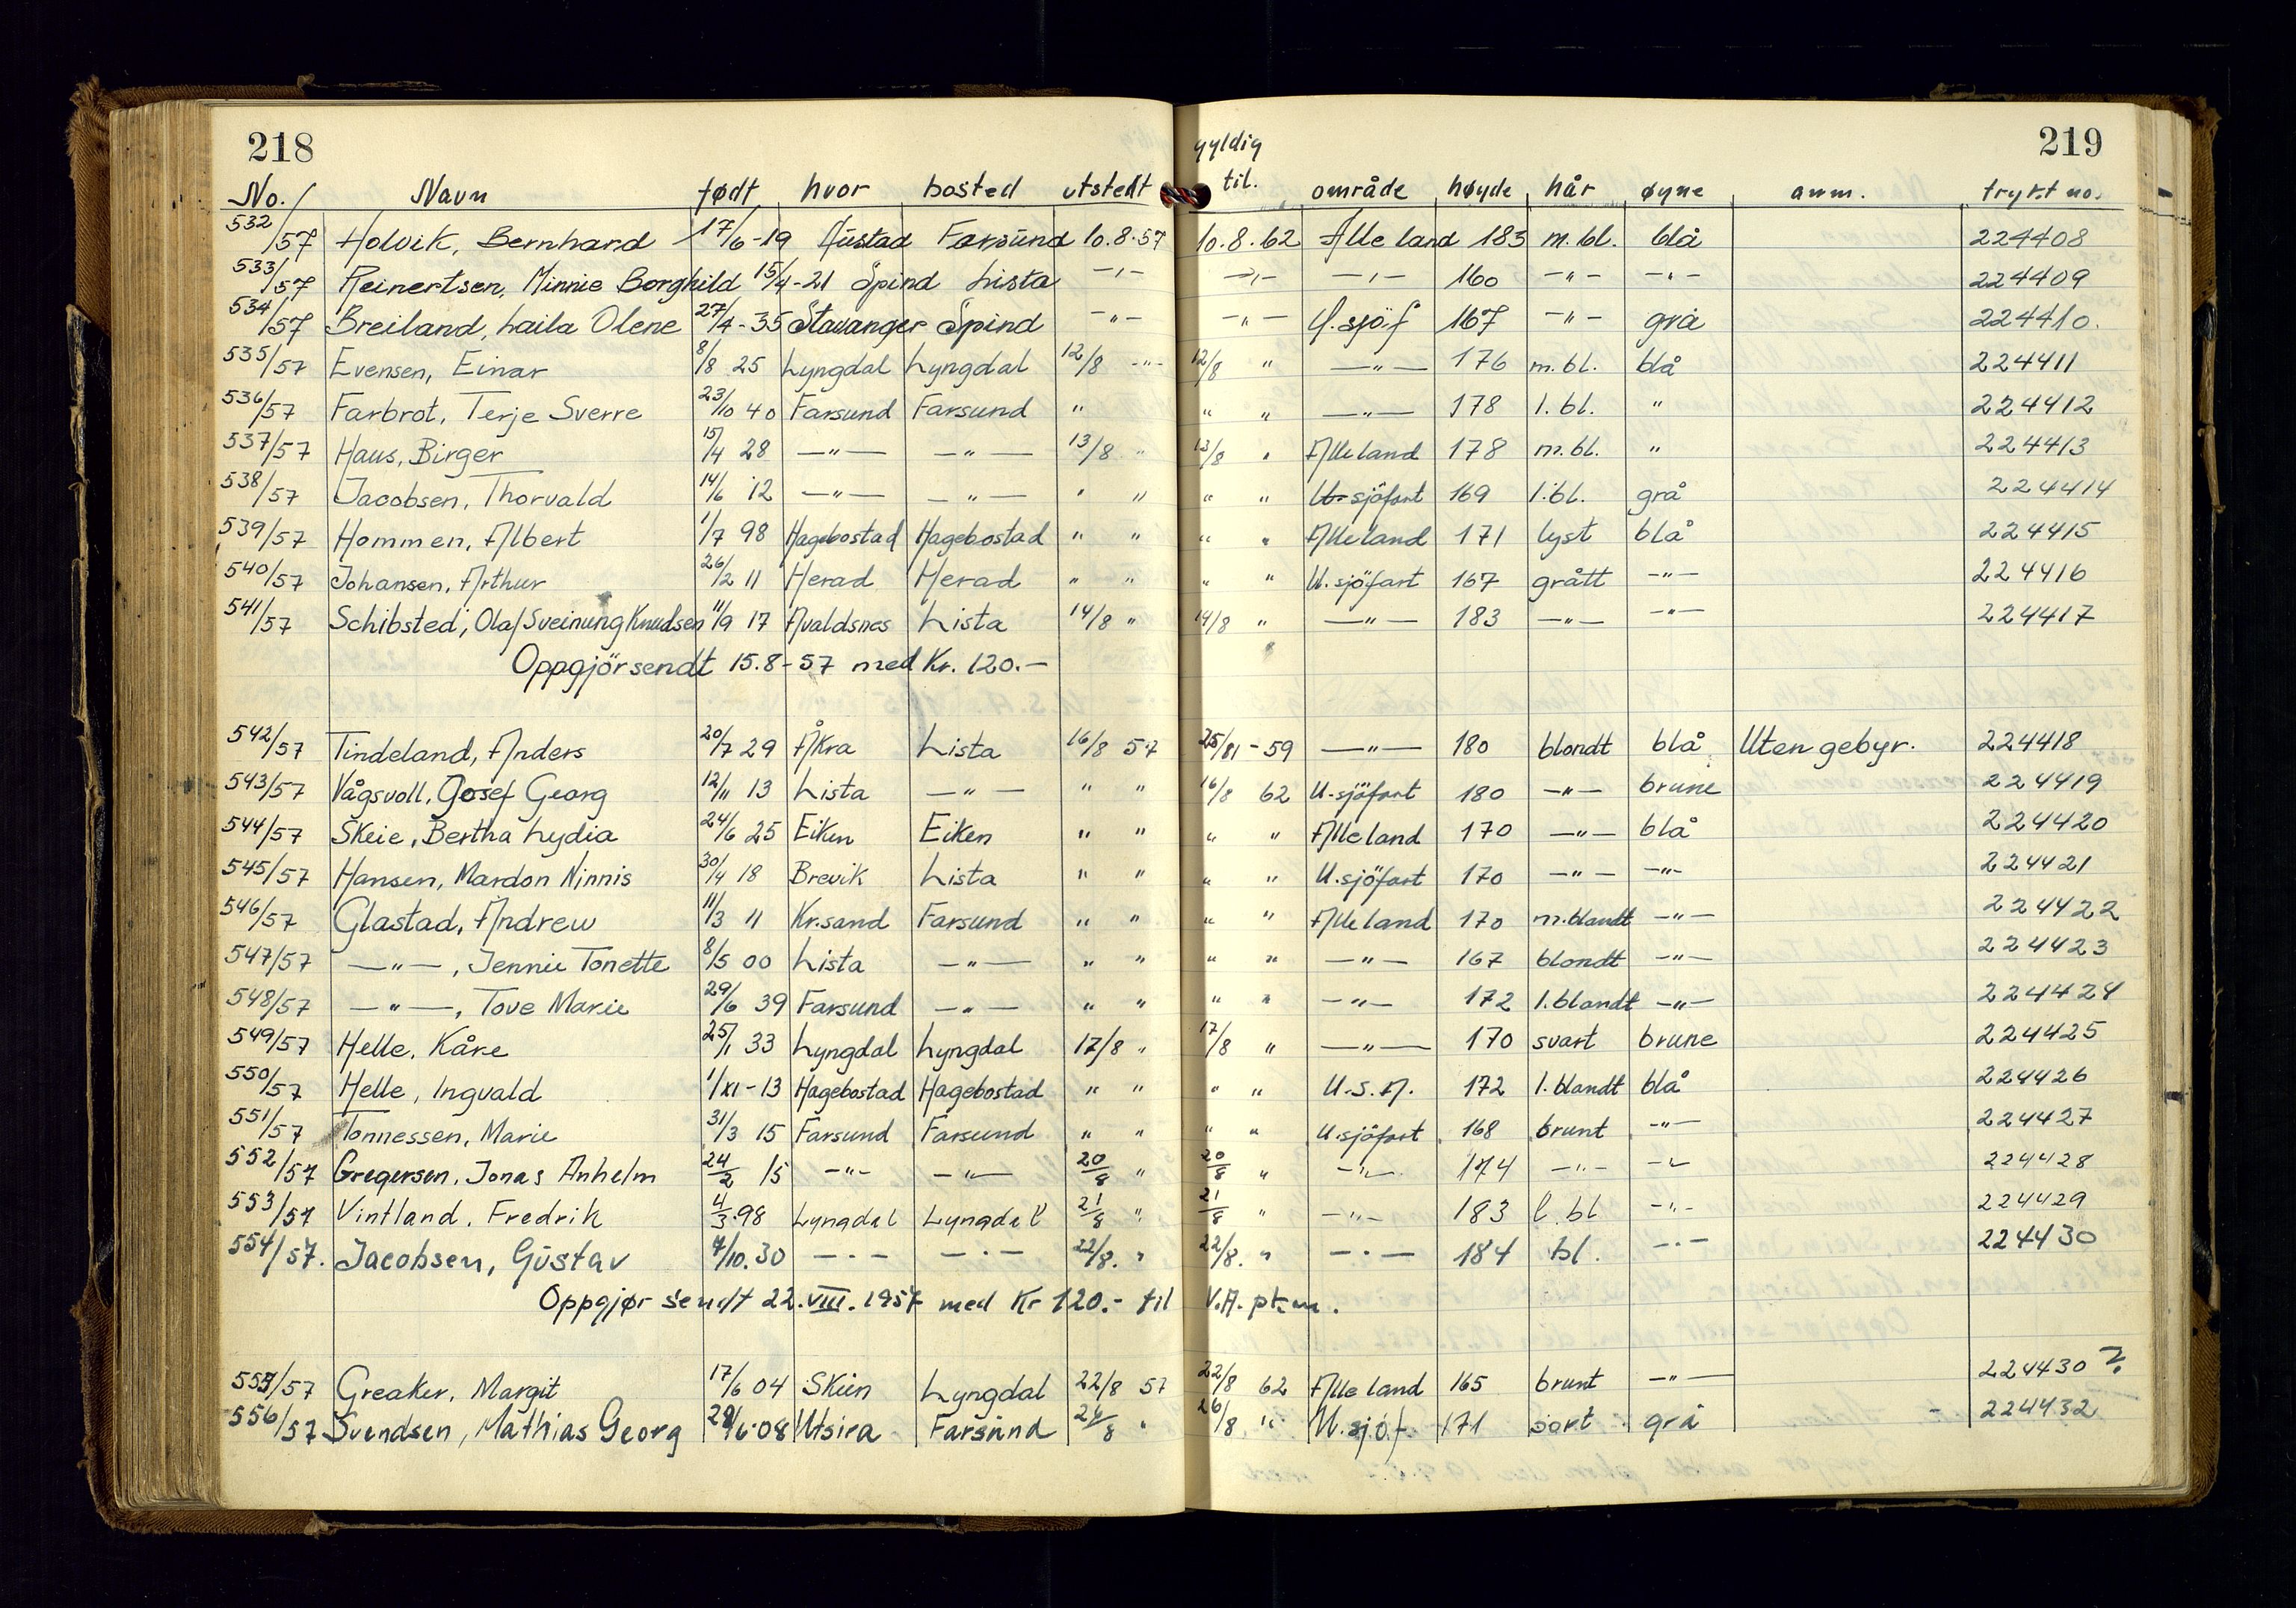 218
gyldig
219
No. / Navn født hvor bosted utstedt til. område høyde hår øyne anm. trykt no.
532/57 Holvik, Bernhard 17/6-19 Austad Farsund 10.8.57 10.8.62 Alle land 183 m.bl. blå 224408
533/57 Reinertsen, Minnie Borghild 15/4-21 Spind Lista -"- -"- -"- 160 -"- -"- 224409
534/57 Breiland, Laila Olene 27/4-35 Stavanger Spind -"- -"- U.sjöf 167 -"- grå 224410.
535/57 Evensen, Einar 8/8 25 Lyngdal Lyngdal 12/8 -"- 12/8 " -"- 176 m.bl. blå 224411
536/57 Farbrot, Terje Sverre 23/10 40 Farsund Farsund " " " -"- 178 l.bl. " 224412
537/57 Haus, Birger 15/4 28 -"- -"- 13/8 " 13/8 " Alle land 178 m.bl. " 224413
538/57 Jacobsen, Thorvald 14/6 12 -"- -"- " " " " U.sjöfart 169 l.bl. grå 224414
539/57 Hommen, Albert 1/7 98 Hagebostad Hagebostad " " " " Alle land 171 lyst blå 224415
540/57 Johansen, Arthur 26/2 11 Herad Herad " " " " U.sjöfart 167 grått -"- 224416
541/57 Schibsted, Olaf Sveinung Knudsen 11/9 17 Avaldsnes Lista 14/8 " 14/8 " -"- 183 -"- -"- 224417
Oppgjör sendt 15.8-57 med Kr. 120.-
542/57 Tindeland, Anders 20/7 29 Åkra Lista 16/8 57 25/81-59 -"- 180 blondt blå Uten gebyr. 224418
543/57 Vågsvoll, Josef Georg 12/11 13 Lista -"- " " 16/8 62 U.sjöfart 180 -"- brune 224419
544/57 Skeie, Bertha Lydia 24/6 25 Eiken Eiken " " " " Alle land 170 -"- blå 224420
545/57 Hansen, Mardon Ninnis 30/4 18 Brevik Lista " " " " U.sjöfart 170 -"- -"- 224421
546/57 Glastad, Andrew 11/3 11 Kr.sand Farsund " " " " Alle land 170 m.blandt -"- 224422
547/57 -"-, Jennie Tonette 8/5 00 Lista -"- " " " " -"- 167 blondt -"- 224423
548/57 -"-, Tove Marie 29/6 39 Farsund -"- " " " " -"- 172 l.blandt -"- 224424
549/57 Helle, Kåre 25/1 33 Lyngdal Lyngdal 17/8 " 17/8 " -"- 170 svart brune 224425
550/57 Helle, Ingvald 1/XI-13 Hagebostad Hagebostad " " " " U.S.A. 172 l.blandt blå 224426
551/57 Tonnessen, Marie 31/3 15 Farsund Farsund " " " " U.sjöfart 168 brunt -"- 224427
552/57 Gregersen, Jonas Anhelm 24/2 15 -"- -"- 20/8 " 20/8 " -"- 174 -"- -"- 224428
553/57 Vintland, Fredrik 4/3.98 Lyngdal Lyngdal 21/8 " 21/8 " -"- 183 l.bl -"- 224429
554/57. Jacobsen, Gustav 4/10.30 -"- -"- 22/8. " 22/8. " -"- 184 bl. -"- 224430
Oppgjør sendt 22.VIII.1957 med Kr 120.- til V.A. pk.m.
555/57 Greaker, Margit 17/6 04 Skien Lyngdal 22/8 57 22/8 62 Alle land 165 brunt -"- 224430 ?
556/57 Svendsen, Mathias Georg 29/6.08 Utsira Farsund 26/8 " 26/8 " U.sjöf 171 sort grå 224432